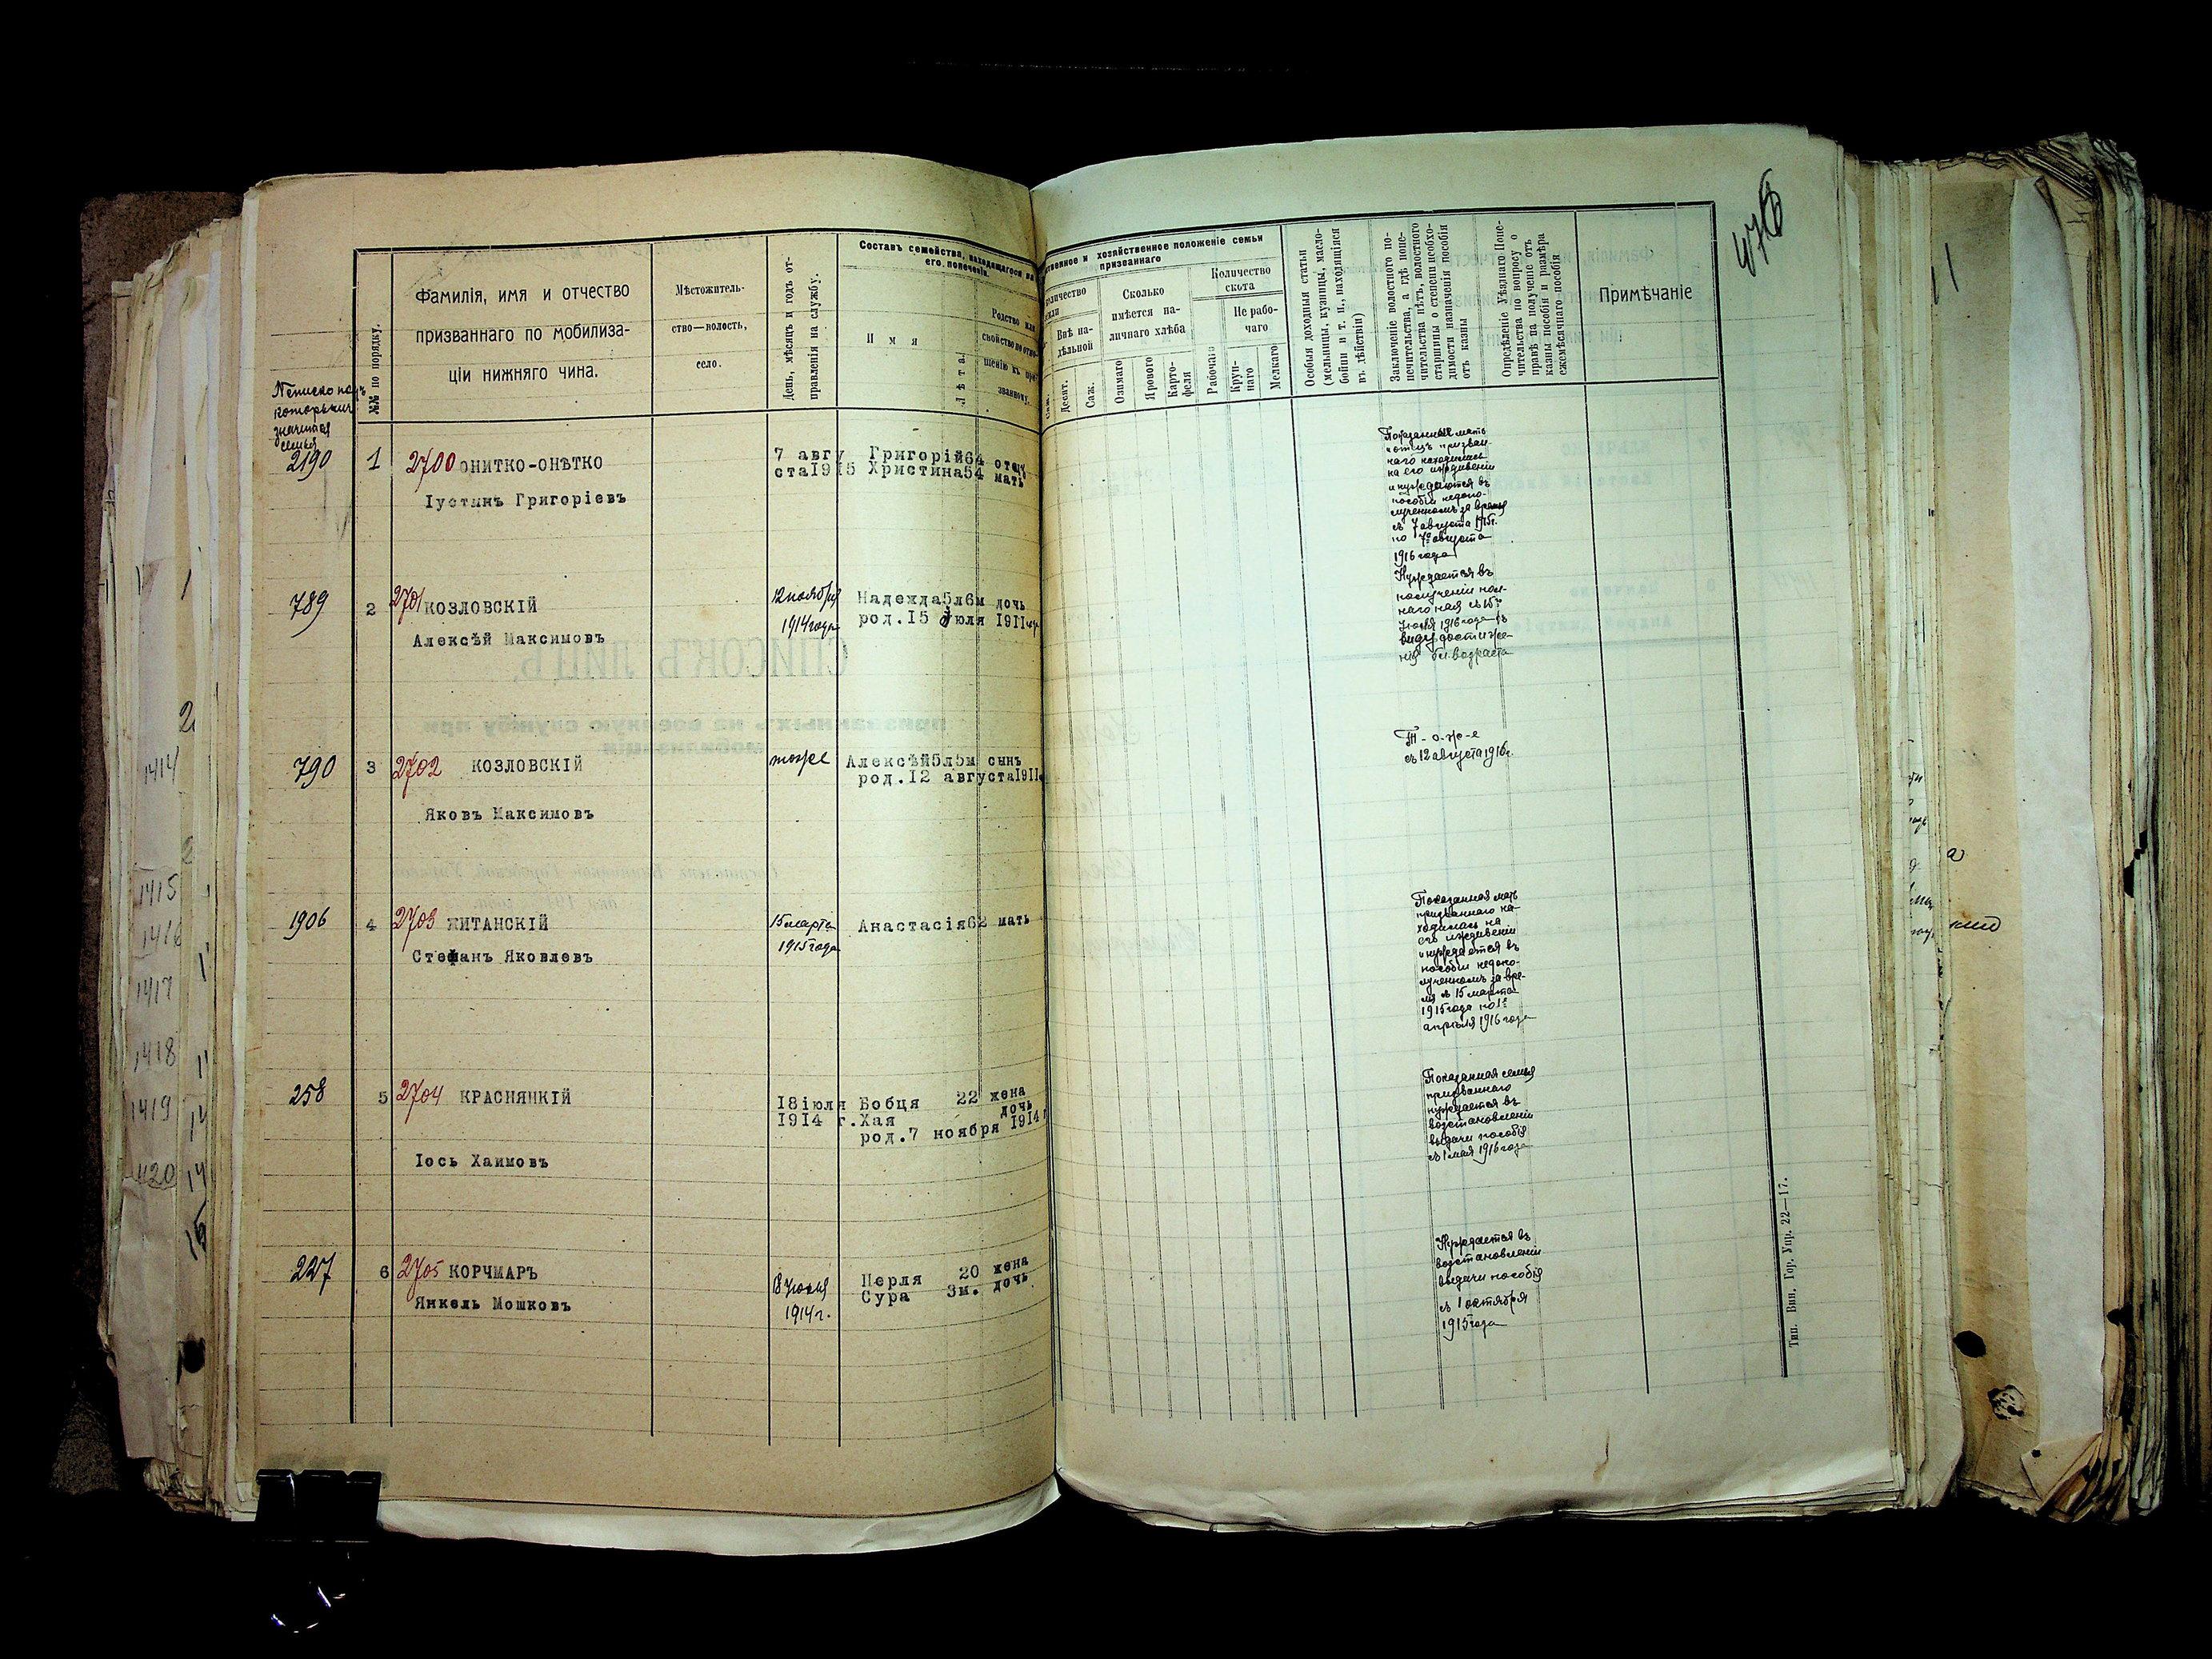 Фамилія, имя и отчество
призваннаго по мобилиза-
ціи нижняго чина.
Мѣстожитель-
ство—волость,
село.
№№ по порядку.
День, мѣсяцъ и годъ от-
правленія на службу.
Составъ семейства, находящагося на
его попеченіи.
Имя
Лѣта.
Родство или
свойство по отно-
шенію къ при-
званному.
хозяйственное положеніе семьи
призваннаго
Внѣ на-
дѣльной
Десят.
Саж.
Сколько
имѣется на-
личнаго хлѣба
Озимаго
Ярового
Карто-
феля
Количество
скота
Рабочаго
Не рабо-
чаго
Круп-
наго
Мелкаго
Особыя доходныя статьи
(мельницы, кузницы, масло-
бойни и т. п., находящіяся
въ дѣйствіи)
Заключеніе волостного по-
печительства, а гдѣ попе-
чительства нѣтъ, волостного
старшины о степени необхо-
димости назначенія пособія
отъ казны
Опредѣленіе Уѣзднаго Попе-
чительства по вопросу о
правѣ на полученіе отъ
казны пособія и размѣра
ежемѣсячнаго пособія
Примѣчаніе
которымъ
значится
семья
2190 1 2700 ОНИТКО-ОНѢТКО
Іустинъ Григоріевъ
7 авгу Григорій 64 отецъ
ста 1915 Христина 54 мать
Показанные мать
и отецъ призван-
наго находились
на его иждивеніи
и нуждаются въ
пособіи недопо-
лученномъ за время
съ 7 августа 1915г.
по 7е августа
1916 года
789 2 2701 КОЗЛОВСКІЙ
Алексѣй Максимовъ
12 ноября
1914 года
Надежда 5л6м дочь
род. 15 Іюля 1911 г.
Нуждается въ
полученіи пол-
наго пая съ 15го
Іюля 1916 года въ
виду достиже-
нія 5л. возраста
790 3 2702 КОЗЛОВСКІЙ
Яковъ Максимовъ
тоже
Алексѣй 5л5м сынъ
род. 12 августа 1911
Т-о-ж-е
съ 12 августа 1916г.
1906 4 2703 ЖИТАНСКІЙ
Стефанъ Яковлевъ
15 марта
1915 года
Анастасія 62 мать
Показанная мать
призваннаго на-
ходилась на
его иждивеніи
и нуждается въ
пособіи недопо-
лученномъ за вре-
мя съ 15 марта
1915 года по 1е
апрѣля 1916 года
258 5 2704 КРАСНЯНКІЙ
Іось Хаимовъ
18 іюля Бобця 22 жена
1914 г. Хая дочь
род. 7 ноября 1914 г
Показанная семья
призваннаго
нуждается въ
возстановленіи
выдачи пособія
съ 1 мая 1916 года
227 6 2705 КОРЧМАРЪ
Янкель Мошковъ
18 Іюля
1914 г.
Перля 20 жена
Сура 3м. дочь
Нуждается въ
возстановленіи
выдачи пособія
съ 1 октября
1915 года
Тип. Вин. Гор. Упр. 22—17.
1414
1415
1416
1417
1418
1419
1420